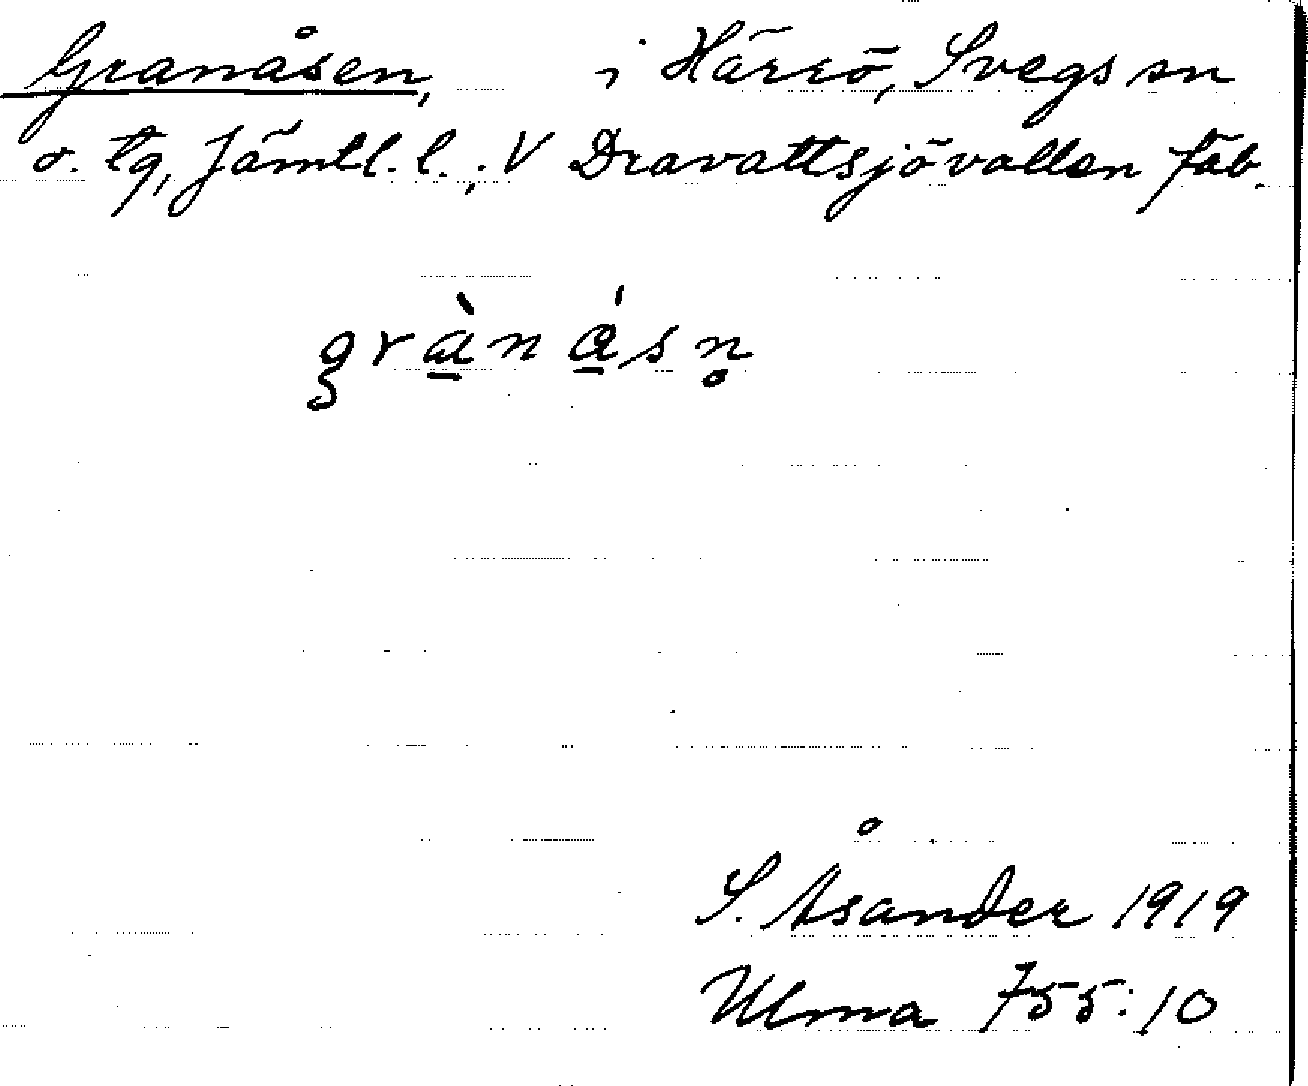 Granåsen, i Härrö, Svegs sn
o. tg, Jämtl. l.; V Dravattsjövallen fäb.
gràn ásn̥
S. Åsander 1919
Ulma 755:10